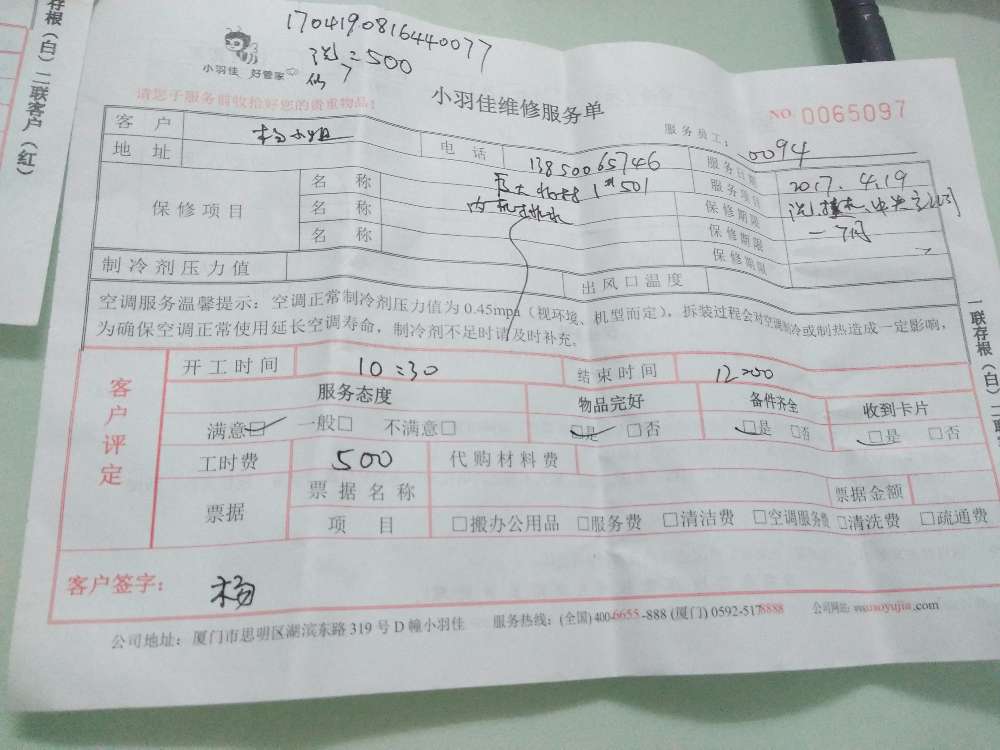 1704190816440077
洗=500
小羽佳 好管家
请您于服务前收拾好您的贵重物品!
小羽佳维修服务单
NO. 0065097
服务员工: 0094
客 户 杨小姐 电 话 13850065746 服务日期 2017.4.19
地 址 1#501 服务项目
保修项目 名 称 保修期限
名 称 保修期限
名 称 保修期限
制冷剂压力值 出风口温度
空调服务温馨提示:空调正常制冷剂压力值为 0.45mpa(视环境、机型而定),拆装过程会对空调制冷或制热造成一定影响,
为确保空调正常使用延长空调寿命,制冷剂不足时请及时补充。
客户评定
开工时间 10:30 结束时间 12:00
服务态度 物品完好 备件齐全 收到卡片
满意☑ 一般□ 不满意□ ☑是 □否 ☑是 □否 ☑是 □否
工时费 500 代购材料费
票据 票据名称 票据金额
项 目 □搬办公用品 □服务费 □清洁费 □空调服务费 □清洗费 □疏通费
客户签字: 杨
公司地址:厦门市思明区湖滨东路 319 号 D 幢小羽佳 服务热线:(全国) 400-6655-888 (厦门) 0592-5178888 公司网站:
存根(白)二联客户(红)
一联存根(白)二联